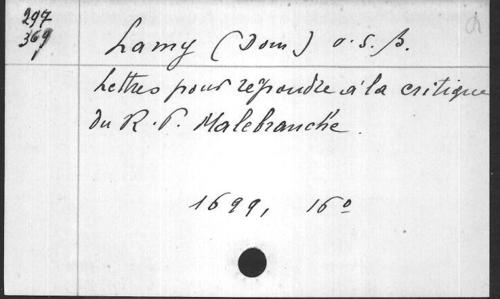 297
369
Lamy (Dom) o. s. B.
Lettres pour répondre à la critique
du R. P. Malebranche.
1699, 16°